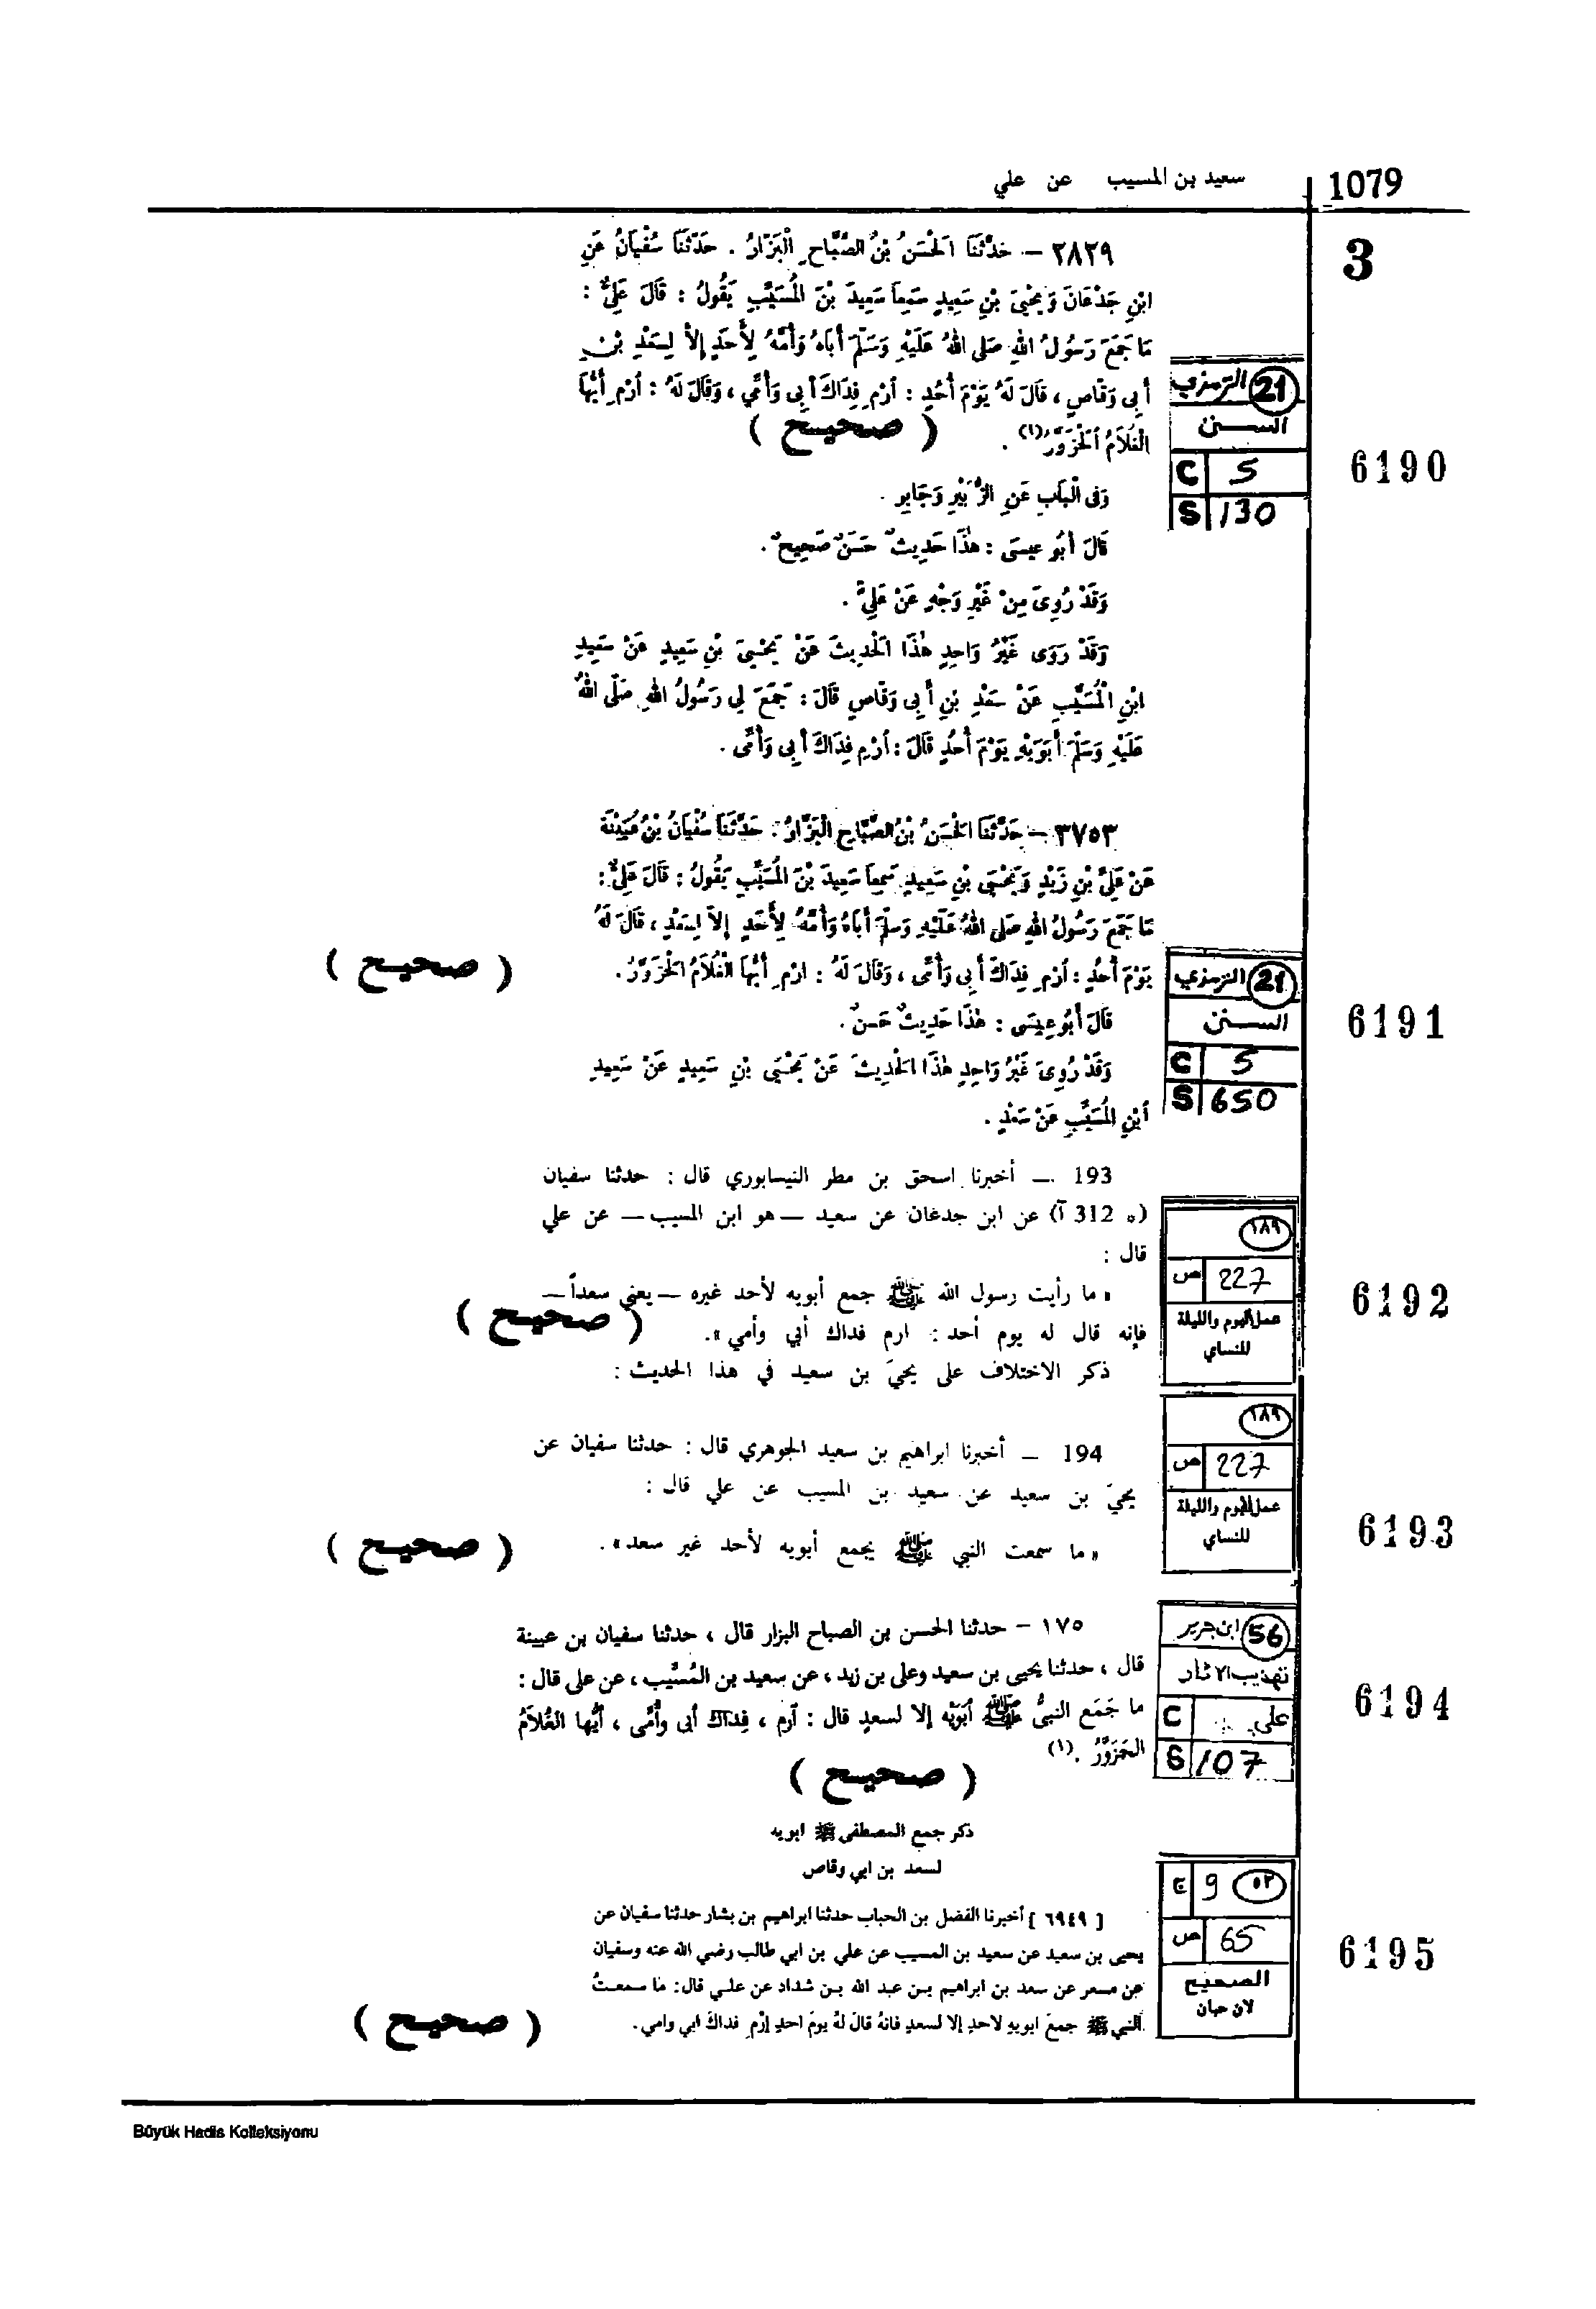 1079
سعيد بن المسيب عن علي
3
٢٨٢٩ — حَدَّثَنَا الْحَسَنُ بْنُ الصَّبَّاحِ الْبَزَّارُ . حَدَّثَنَا سُفْيَانُ عَنِ
ابْنِ جَدْعَانَ وَيَحْيَىَ بْنِ سَعِيدٍ سَمِعَا سَعِيدَ بْنَ الْمُسَيَّبِ يَقُولُ : قَالَ عَلِيٌّ :
مَا جَمَعَ رَسُولُ اللهِ صَلى اللهُ عَلَيْهِ وَسَلّمَ أَبَاهُ وَأُمَّهُ لِأَحَدٍ إِلاَّ لِسَعْدِ بْنِ
أَبِى وَقّاصٍ ، قَالَ لَهُ يَوْمَ أُحُدٍ : ارْمِ فِدَاكَ أَبِى وَأُمِّي ، وَقَالَ لَهُ : ارْمِ أَيُّهَا
الْغُلاَمُ الْحَزَوَّرُ(١) .
( صحيح )
21 الترمذي
السنن
C 5
S 130
6190
وَفِى الْبَابِ عَنِ الزُّبَيْرِ وَجَابِرٍ .
قَالَ أَبُو عِيسَى : هٰذَا حَدِيثٌ حَسَنٌ صَحِيحٌ .
وَقَدْ رُوِىَ مِنْ غَيْرِ وَجْهٍ عَنْ عَلِيٍّ .
وَقَدْ رَوَى غَيْرُ وَاحِدٍ هٰذَا الْحَدِيثَ عَنْ يَحْيىَ بْنِ سَعِيدٍ عَنْ سَعِيدِ
ابْنِ الْمُسَيَّبِ عَنْ سَعْدِ بْنِ أَبِى وَقّاصٍ قَالَ : جَمَعَ لِى رَسُولُ اللهِ صَلّى اللهُ
عَلَيْهِ وَسَلّمَ أَبَوَيْهِ يَوْمَ أُحُدٍ قَالَ : ارْمِ فِدَاكَ أَبِى وَأُمِّى .
٣٧٥٣ — حَدَّثَنَا الْحَسَنُ بْنُ الصَّبَّاحِ الْبَزَّارُ . حَدَّثَنَا سُفْيَانُ بْنُ عُيَيْنَةَ
عَنْ عَلِيِّ بْنِ زَيْدٍ وَيَحْيَى بْنِ سَعِيدٍ سَمِعَا سَعِيدَ بْنَ الْمُسَيَّبِ يَقُولُ : قَالَ عَلِيٌّ :
مَا جَمَعَ رَسُولُ اللهِ صَلى اللهُ عَلَيْهِ وَسَلّمَ أَبَاهُ وَأُمَّهُ لِأَحَدٍ إِلاَّ لِسَعْدٍ ، قَالَ لَهُ
يَوْمَ أُحُدٍ : ارْمِ فِدَاكَ أَبِى وَأُمِّى ، وَقَالَ لَهُ : ارْمِ أَيُّهَا الْغُلاَمُ الْحَزَوَّرُ .
( صحيح )
21 الترمذي
السنن
C 5
S 650
6191
قَالَ أَبُو عِيسَى : هٰذَا حَدِيثٌ حَسَنٌ .
وَقَدْ رُوِىَ غَيْرُ وَاحِدٍ هٰذَا الْحَدِيثَ عَنْ يَحْيَى بْنِ سَعِيدٍ عَنْ سَعِيدِ
ابْنِ الْمُسَيَّبِ عَنْ سَعْدٍ .
193 — أخبرنا اسحق بن مطر النيسابوري قال : حدثنا سفيان
(* 312 آ) عن ابن جدغان عن سعيد — هو ابن المسيب — عن علي
قال :
« ما رأيت رسول الله ﷺ جمع أبويه لأحد غيره — يعني سعداً —
فإنه قال له يوم أحد : ارم فداك أبي وأمي ».
( صحيح )
ذكر الاختلاف على يحيىَ بن سعيد في هذا الحديث :
١٨٩
ص 227
عمل اليوم والليلة
للنساي
6192
194 — أخبرنا ابراهيم بن سعيد الجوهري قال : حدثنا سفيان عن
يحيىَ بن سعيد عن سعيد بن المسيب عن علي قال :
« ما سمعت النبي ﷺ يجمع أبويه لأحد غير سعد ».
( صحيح )
١٨٩
ص 227
عمل اليوم والليلة
للنساي
6193
١٧٥ — حدثنا الحسن بن الصباح البزار قال ، حدثنا سفيان بن عيينة
قال ، حدثنا يحيى بن سعيد وعلى بن زيد ، عن سعيد بن المُسَيَّب ، عن على قال :
ما جَمَع النبىُّ ﷺ أَبَوَيْه إلا لسعدٍ قال : آرم ، فِداك أبى وأُمِّى ، أيُّها الغُلاَمُ
الحَزَوَّرُ .(١)
( صحيح )
56 ابن جرير
تهذيب الاثار
C علي
S 107
6194
ذكر جمع المصطفى ﷺ ابويه
لسعد بن ابي وقاص
[ ٦٩٤٩ ] أخبرنا الفضل بن الحباب حدثنا ابراهيم بن بشار حدثنا سفيان عن
يحيى بن سعيد عن سعيد بن المسيب عن علي بن ابي طالب رضي الله عنه وسفيان
عن مسعر عن سعد بن ابراهيم بن عبد الله بن شداد عن علي قال: ما سمعتُ
النبي ﷺ جمعَ ابويهِ لاحدٍ إلا لسعدٍ فانهُ قالَ لهُ يومَ احدٍ إرْمِ فداكَ ابي وامي.
( صحيح )
٥٢ 9 ج
ص 65
الصحيح
لابن حبان
6195
Büyük Hadis Kolleksiyonu